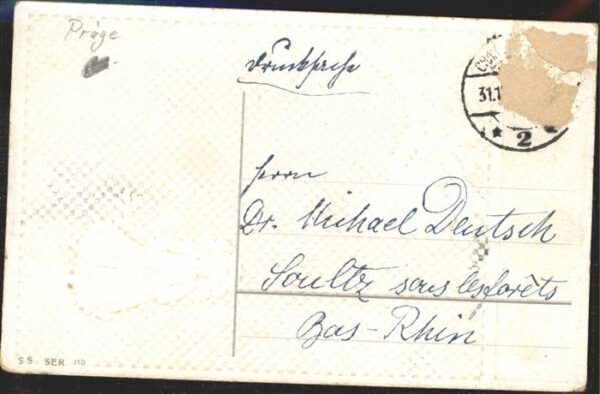 Präge
Drucksache
31.1
* 2
Herrn
Dr. Michael Deutsch
Soultz sous les forêts
Bas-Rhin
SS. SER. 110